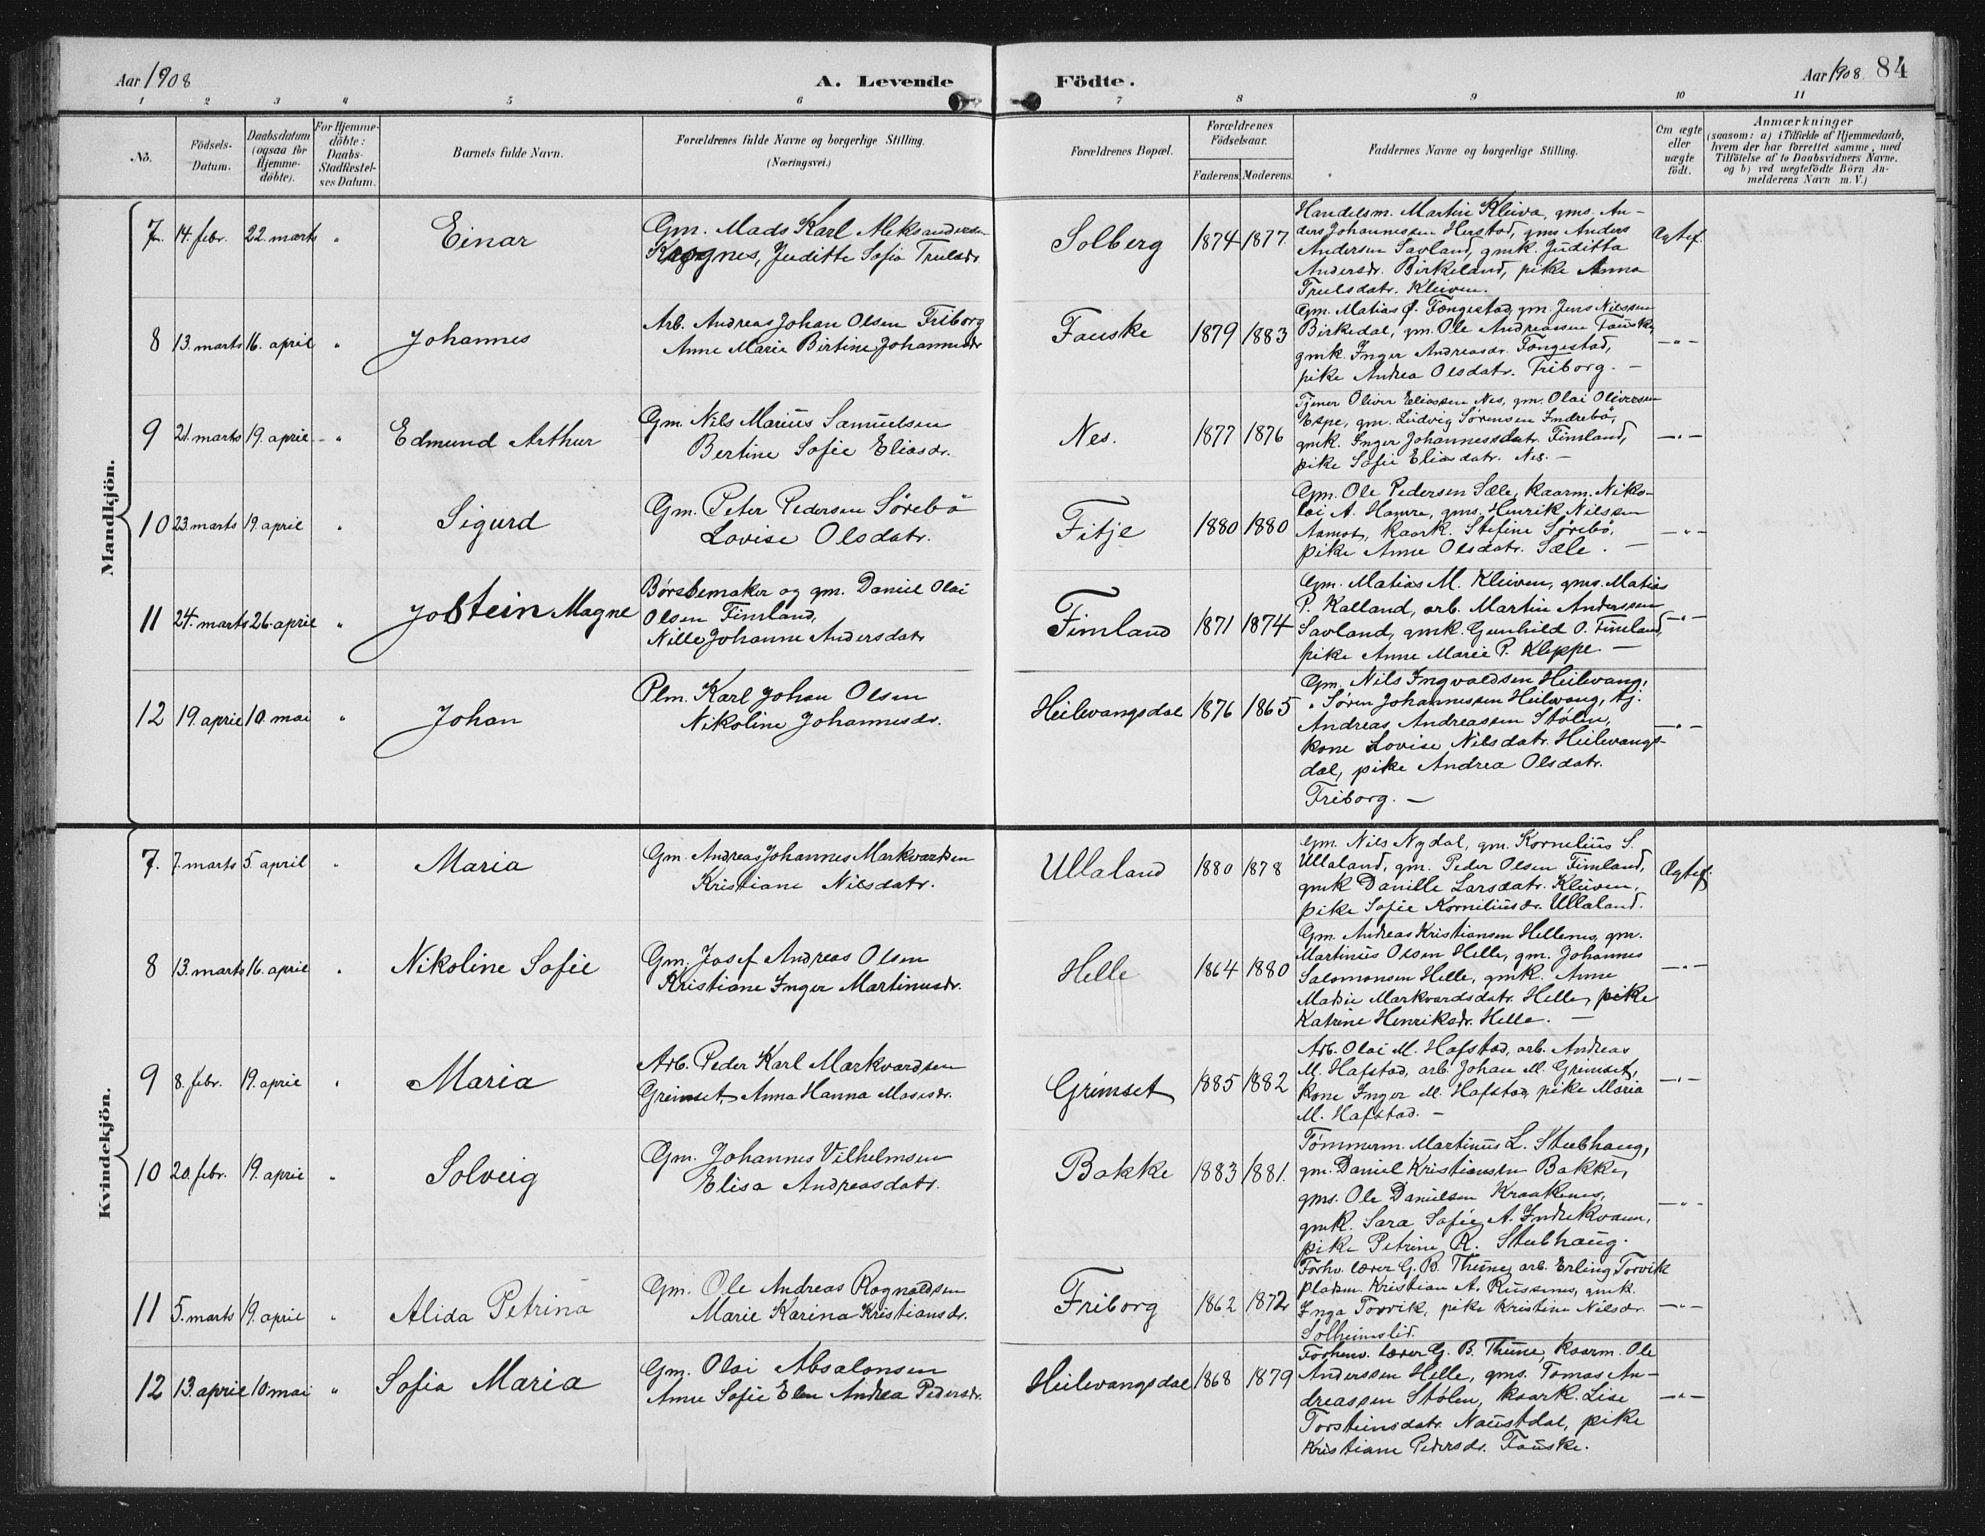 Aar 1908
A. Levende
Födte.
Aar 1908. 84
1 2 3 4 5 6 7 8 9 10 11
No.
Födsels-
Datum.
Daabsdatum
(ogsaa for
Hjemme-
döbte).
For Hjemme-
döbte:
Daabs-
Stadfæstel-
ses Datum.
Barnets fulde Navn.
Forældrenes fulde Navne og borgerlige Stilling.
(Næringsvei.)
Forældrenes Bopæl.
Forældrenes
Födselsaar.
Faderens. Moderens.
Faddernes Navne og borgerlige Stilling.
Om ægte
eller
uægte
født.
Anmærkninger
(saasom: a) i Tilfælde af Hjemmedaab,
hvem der har forrettet samme, med
Tilföielse af to Daabsvidners Navne.
og b) ved uægtefödte Börn An-
melderens Navn m. V.)
Mandkjön.
7. 14. febr. 22. marts " Einar
Gm. Mads Karl Aleksandersen
Kragnes, Juditte Sofia Trulsdr.
Solberg 1874 1877.
Handelsm. Martin Kleiva, gms. An-
ders Johannessen Herstad, gms Anders
Andersen Savland, gmk. Juditta
Andersdr. Birkeland, pike Anna
Trulsdatr. Kleiven.
Ægtef.
8 13. marts 16. april " Johannes
Arb. Andreas Johan Olsen Friborg
Anne Marie Birtine Johannesdr
Fauske 1879 1883
Gm. Matias O. Fongestad, gm. Jens Nilssen
Birkedal, gm. Ole Andreassen Fauske,
gmk. Inger Andreasdr. Fongestad,
pike Andrea Olsdatr. Friborg. —
—"—
9 21. marts 19. april - " Edmund Arthur
Gm. Nils Marius Samuelsen
Bertine Sofie Eliasdr.
Nes. 1877 1876
Tjener Oliver Eliassen Nes, gm. Olai Oliversen
Espe, gm. Ludvig Sørensen Indrebö,
gmk. Inger Johannessdatr. Fimland,
pike Sofie Eliasdatr. Nes. —
—"—
10 23. marts 19. april " Sigurd
Gm. Peter Pedersen Sørebö
Lovise Olsdatr.
Fitje 1880 1880
Gm. Ole Pedersen Sæle, kaarm. Niko-
lai A. Hamre, gms. Henrik Nilssen
Aamot, kaark. Stefine Sørebö,
pike Anne Olsdatr. Sæle. —
—"—
11 24. marts 26. april " Jostein Magne
Børsemaker og gm. Daniel Olai
Olsen Fimland,
Nille Johanne Andersdatr
Fimland 1871 1874
Gm. Matias M. Kleiven, gms. Matias
P. Kalland, arb. Martin Anderssen
Savland, gmk. Gunhild O. Fimland,
pike Anne Marie P. Kleppe. —
—"—
12 19. april 10. mai " Johan
Plm. Karl Johan Olsen
Nikoline Johannesdr.
Heilevangsdal 1876 1865
Gm. Nils Ingvaldsen Heilevang,
" Søren Johannessen Heilevang, tj.
Andreas Andreassen Stølen,
kone Lovise Nilsdatr. Heilevangs-
dal, pike Andrea Olsdatr.
Friborg. —
—"—
Kvindekjön.
7. 7. marts 5. april " Maria
Gm. Andreas Johannes Markvardsen
Kristiane Nilsdatr.
Ullaland 1880 1878
Gm. Nils Nydal, gm. Kornelius S.
Ullaland, gm. Peder Olsen Fimland,
gmk Danille Larsdatr. Kleiven,
pike Sofie Korneliusdr. Ullaland.
Ægtef.
8 13. marts 16. april " Nikoline Sofie
Gm. Josef Andreas Olsen
Kristiane Inger Martinusdr.
Helle 1864 1880
Gm. Andreas Kristiansen Hellenes, gm.
Martinus Olsen Helle, gm. Johannes
Salomonsen Helle, gmk. Anne
Matsie Markvardsdatr. Helle, pike
Katrine Henriksdr. Helle. —
—"—
9 8. febr. 19. april " Maria
Arb. Peder Karl Markvardsen
Grimset, Anna Hanna Mosesdr.
Grimset 1885 1882
Arb. Olai M. Hafstad, arb. Andreas
M. Hafstad, arb. Johan M. Grimset,
kone Inger M. Hafstad, pike Maria
M. Hafstad. —
—"—
10 20. febr. 19. april " Solveig
Gm. Johannes Vilhelmsen
Elisa Andreasdatr.
Bakke 1883 1881.
Tømmerm. Martinus L. Stubhaug,
gm. Daniel Kristiansen Bakke,
gms. Ole Danielsen Kraakenes,
gmk. Sara Sofie A. Indrekvam,
pike Petrine R. Stubhaug.
—"—
11 5. marts 19. april " Alida Petrina
Gm. Ole Andreas Ragnaldsen
Marie Karina Kristiansdr.
Friborg 1862 1872
Forhv. lærer G. B. Thune, arb. Erling Torvik
pladsm Kristian A. Russenes, gmk.
Inga Torvik, pike Kristine Nilsdr.
Solheimslid.
—"—
12 13. april 10 mai " Sofia Maria
Gm. Olai Absalonsen
Anne Sofie Elen Andrea Pedersdr.
Heilevangsdal 1868 1879
Forhenv. lærer G. B. Thune, kaarm. Ole
Anderssen Helle, gms. Tomas An-
dreassen Stølen, kaark. Lise
Torsteinsdatr. Naustdal, pike
Kristiane Pedersdr. Fauske.
—"—